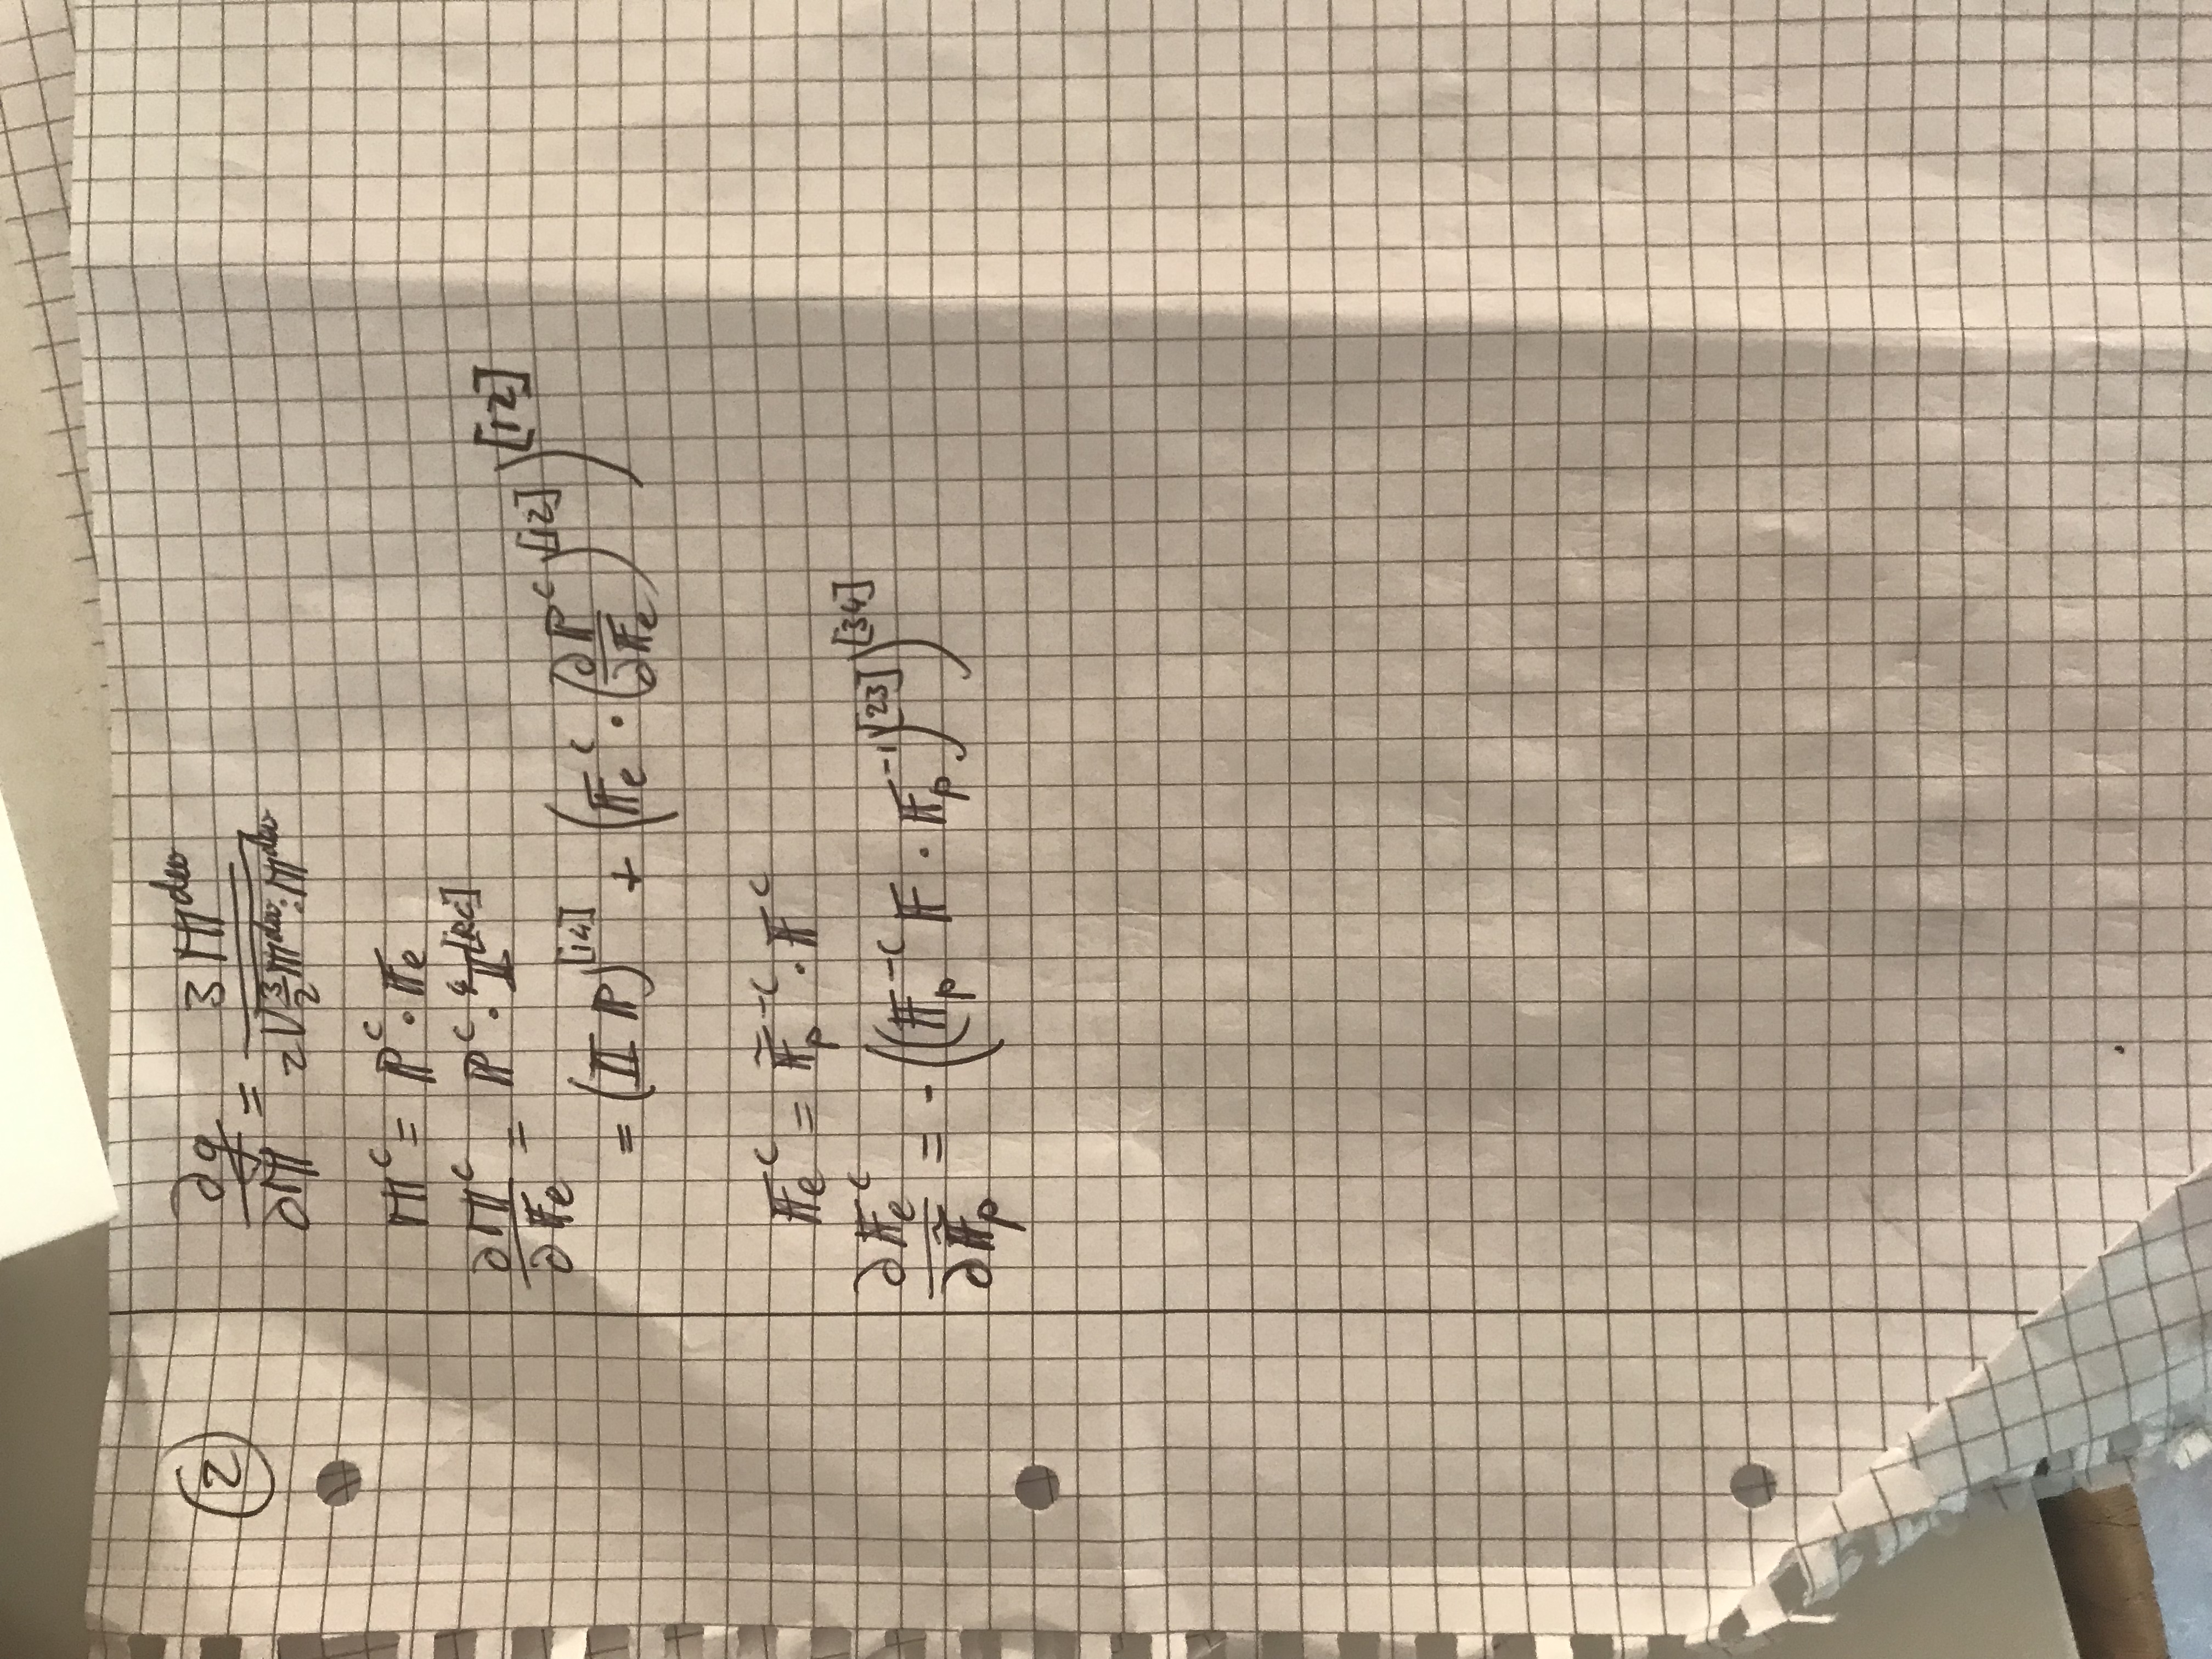 ②
∂g/∂𝕄 = 3 𝕄^dev / 2√(3/2 𝕄^dev : 𝕄^dev)
𝕄^c = ℙ^c · 𝔽_e
∂𝕄^c/∂𝔽_e = ℙ^c · ⁴𝕀^[RC]
= (𝕀 ℙ)^[14] + (𝔽_e^c · (∂ℙ^c/∂𝔽_e)^[12])^[12]
𝔽_e^c = 𝔽̃_p^-c · 𝔽^c
∂𝔽_e^c/∂𝔽̃_p = -((𝔽_p^-c 𝔽 · 𝔽_p^-1)^[23])^[34]